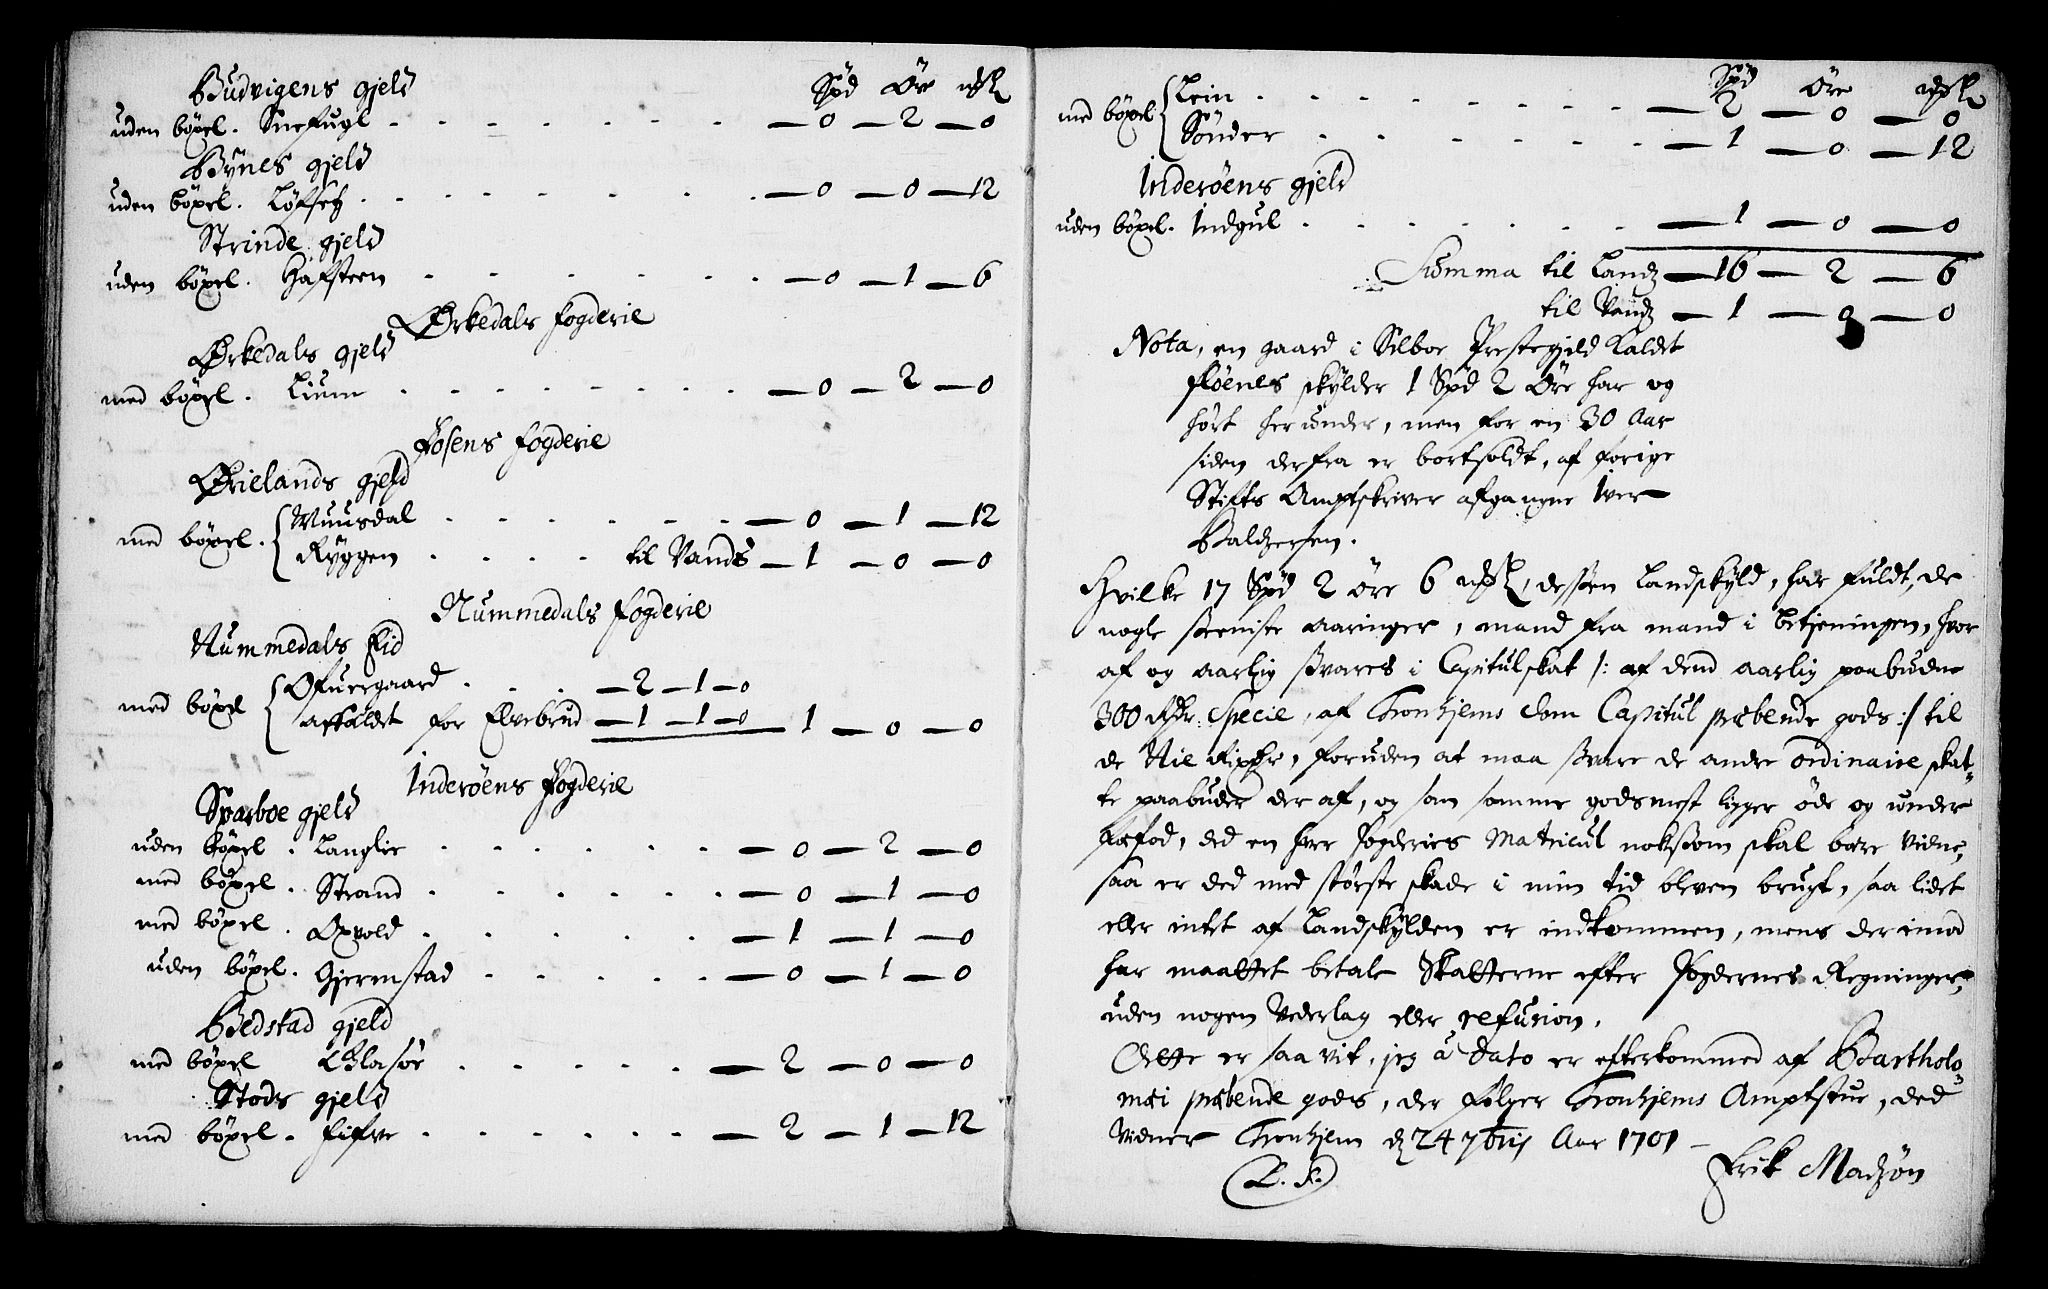 Budvigens gjeld Spd Öre mſk
uden böxel. Snefugl - 0 - 2 - 0
Bÿnes gjeld
uden böxel. Löfset - 0 - 0 - 12
Strinde gjeld
uden böxel. Hafsteen - 0 - 1 - 6
Ørkedals fogderie
Ørkedals gjeld
med böxel. Lium - 0 - 2 - 0
Fosens fogderie
Ørielands gjeld
med böxel. Wuusdal - 0 - 1 - 12
Rÿggen til Vands - 1 - 0 - 0
Nummedals fogderie
Nummedals Eid
med böxel Ofuergaard - 2 - 1 - 0
affældt for Elvebrud - 1 - 1 - 0 1 - 0 - 0
Inderöens Fogderie
Sparboe gjeld
uden böxel. Langlie - 0 - 2 - 0
med böxel. Strand - 0 - 1 - 0
med böxel. Oxvold - 1 - 1 - 0
uden böxel. Gjermstad - 0 - 1 - 0
Bedstad gjeld
med böxel Elden 2 - 0 - 0
Stods gjeld
med böxel. Fifve - 2 - 1 - 12
Spd Öre mſk
med böxel Lein - 2 - 0 - 0
Sönder - 1 - 0 - 12
Inderöens gjeld
uden böxel. Indgul - 1 - 0 - 0
Summa til Landz - 16 - 2 - 6
til Vandz - 1 - 0 - 0
Nota, en gaard i Selboe Prestegjeld Kaldet
Flöenes skÿlder 1 Spd 2 Öre har og
hört herunder, men for en 30 Aar
siden derfra er bortsoldt, af forige
Stiftz Amptskriver afgangne Iver
Baldzersen.
Hvilke 17 Spd 2 öre 6 mſk, dessen Landskÿld, har fuldt, de
nogle seeniste aaringer, mand fra mand i betjeningen, hvor
af og aarlig svares i Capitulskat /: af dend aarlig paabudne
300 Rdr: Specie, af Tronhjems Dom Capitul præbende gods :/ til
de Nie Rixdr, foruden at maa svare de andre ordinaire skat-
te paabuder der af, og som somme gods mest ligger öde og under
Aefod, ded en hver fogderies Matricul noksom skal bære vidne,
saa er ded med störste skade i min tid bleven brugt, saa lidet
eller intet af Landskÿlden er indkommen, mens der imod
har maattet betale Skatterne efter Fogdernes Regninger,
uden nogen Vederlag eller refusion.
Dette er saa vit, jeg â Dato er efterkommed af Bartholo
mæi præbende gods, der fölger Tronhjems Amptstue, ded
Vidner Tronhjem d 24 7bris Aar 1701 -
L. S. Erik Madzön